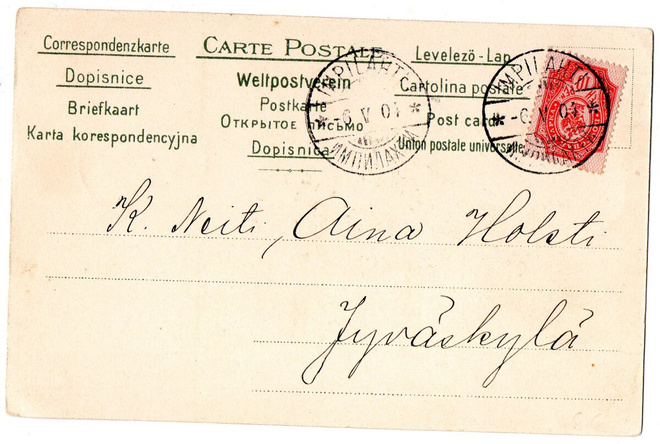 Correspondenzkarte CARTE POSTALE Levelező-Lap
Dopisnice Weltpostverein Cartolina postale
Briefkaart Postkarte Post card
Karta korespondencyjna ОТКРЫТОЕ ПИСЬМО Union postale universelle
Dopisnica
IMPILAHTI
-6 V 04
ИМПИЛАХТИ
IMPILAHTI
-6 V 04
K. Neiti, Aina Holsti
Jyväskylä